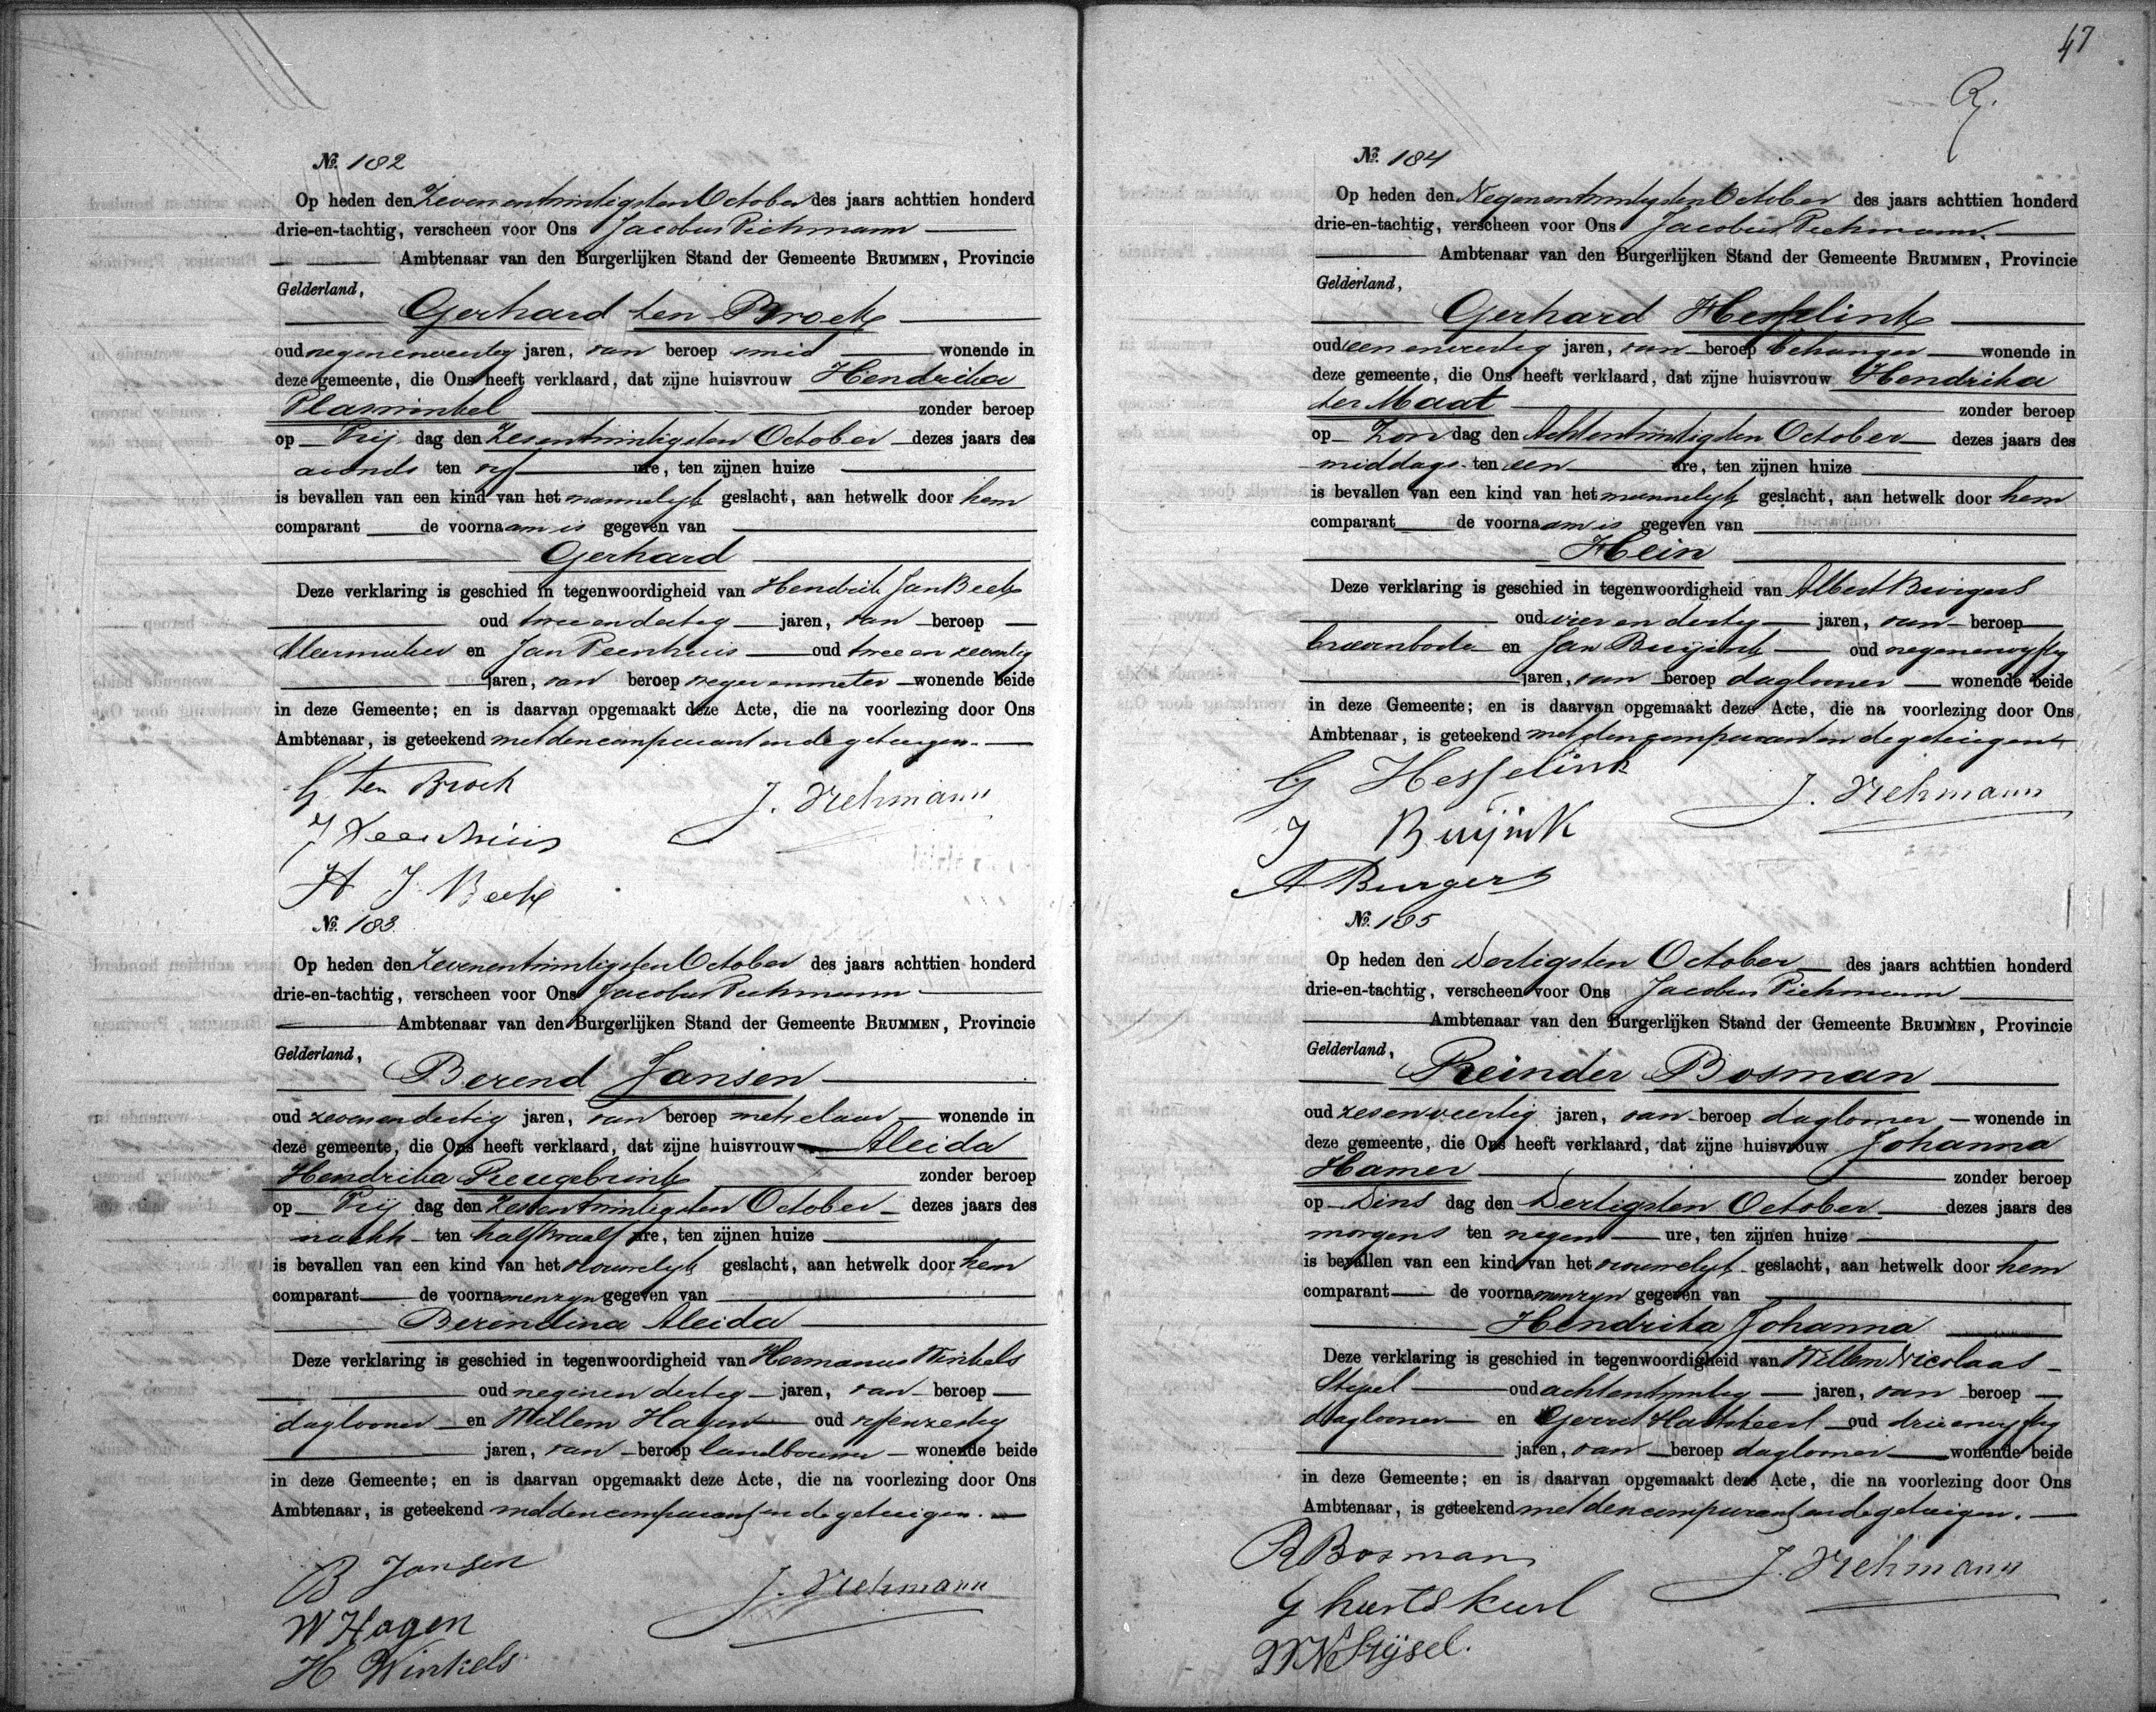 47
R.
№. 182
Op heden den Zevenentwintigsten October des jaars achttien honderd
drie-en-tachtig, verscheen voor Ons Jacobus Piehmann
Ambtenaar van den Burgerlijken Stand der Gemeente BRUMMEN, Provincie
Gelderland,
Gerhard ten Broek
oud negenenveertig jaren, van beroep smid wonende in
deze gemeente, die Ons heeft verklaard, dat zijne huisvrouw Hendrika
Plaswinkel zonder beroep
op Vrij dag den Zesentwintigsten October dezes jaars des
avonds ten vijf ure, ten zijnen huize
is bevallen van een kind van het mannelijk geslacht, aan hetwelk door hem
comparant de voornaam is gegeven van
Gerhard
Deze verklaring is geschied in tegenwoordigheid van Hendrik Jan Beek
oud twee en dertig jaren, van beroep
kleermaker en Jan Peenhuis oud twee en zeventig
jaren, van beroep wegenmeter wonende beide
in deze Gemeente; en is daarvan opgemaakt deze Acte, die na voorlezing door Ons
Ambtenaar, is geteekend met den comparant en de getuigen.
G ten Broek
J. Piehmann
J Peenhuis
H J Beek
№. 183
Op heden den Zevenentwintigsten October des jaars achttien honderd
drie-en-tachtig, verscheen voor Ons Jacobus Piehmann
Ambtenaar van den Burgerlijken Stand der Gemeente BRUMMEN, Provincie
Gelderland,
Berend Jansen
oud zevenendertig jaren, van beroep metselaar wonende in
deze gemeente, die Ons heeft verklaard, dat zijne huisvrouw Aleida
Hendrika Reugebrink zonder beroep
op Vrij dag den Zesentwintigsten October dezes jaars des
nachts ten half twaalf ure, ten zijnen huize
is bevallen van een kind van het vrouwelijk geslacht, aan hetwelk door hem
comparant de voornamen zijn gegeven van
Berendina Aleida
Deze verklaring is geschied in tegenwoordigheid van Hermanus Winkels
oud negenen dertig jaren, van beroep
daglooner en Willem Hagen oud vijfenzestig
jaren, van beroep landbouwer wonende beide
in deze Gemeente; en is daarvan opgemaakt deze Acte, die na voorlezing door Ons
Ambtenaar, is geteekend met den comparant en de getuigen.
B Jansen
J. Piehmann
W Hagen
H Winkels
№. 184
Op heden den Negenentwintigsten October des jaars achttien honderd
drie-en-tachtig, verscheen voor Ons Jacobus Piehmann.
Ambtenaar van den Burgerlijken Stand der Gemeente BRUMMEN, Provincie
Gelderland,
Gerhard Hesselink
oud een enveertig jaren, van beroep behanger wonende in
deze gemeente, die Ons heeft verklaard, dat zijne huisvrouw Hendrika
ter Maat zonder beroep
op Zon dag den Achtentwintigsten October dezes jaars des
middags ten een ure, ten zijnen huize
is bevallen van een kind van het mannelijk geslacht, aan hetwelk door hem
comparant de voornaam is gegeven van
Hein
Deze verklaring is geschied in tegenwoordigheid van Albert Burgers
oud vier en dertig jaren, van beroep
brievenbode en Jan Buijink oud negenenvijftig
jaren, van beroep daglooner wonende beide
in deze Gemeente; en is daarvan opgemaakt deze Acte, die na voorlezing door Ons
Ambtenaar, is geteekend met den comparant en de getuigen
G Hesselink
J. Piehmann
J Buijink
A Burgers
№. 185
Op heden den Dertigsten October des jaars achttien honderd
drie-en-tachtig, verscheen voor Ons Jacobus Piehmann
Ambtenaar van den Burgerlijken Stand der Gemeente BRUMMEN, Provincie
Gelderland,
Reinder Bosman
oud zesenveertig jaren, van beroep daglooner wonende in
deze gemeente, die Ons heeft verklaard, dat zijne huisvrouw Johanna
Hamer zonder beroep
op Dins dag den Dertigsten October dezes jaars des
morgens ten negen ure, ten zijnen huize
is bevallen van een kind van het vrouwelijk geslacht, aan hetwelk door hem
comparant de voornamen zijn gegeven van
Hendrika Johanna
Deze verklaring is geschied in tegenwoordigheid van Willem Nicolaas
Stijsel oud achtentwintig jaren, van beroep
daglooner en Gerrit oud drieenvijftig
jaren, van beroep daglooner wonende beide
in deze Gemeente; en is daarvan opgemaakt deze Acte, die na voorlezing door Ons
Ambtenaar, is geteekend met den comparant en de getuigen.
R Bosman
J. Piehmann
G
W N Stijsel.